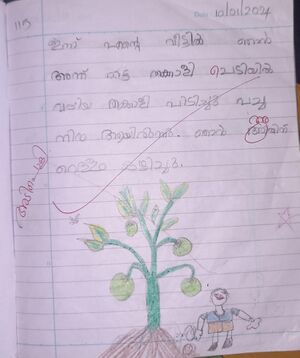 115
Date 10/01/2024
ഇന്ന് എന്റെ വീട്ടിൽ ഞാൻ
അന്ന് നട്ട തക്കാളി ചെടിയിൽ
വലിയ തക്കാളി പിടിച്ചു പച്ച
നിറം ആയിരുന്നു. ഞാൻ അതിന്
വെള്ളം ഒഴിച്ചു.